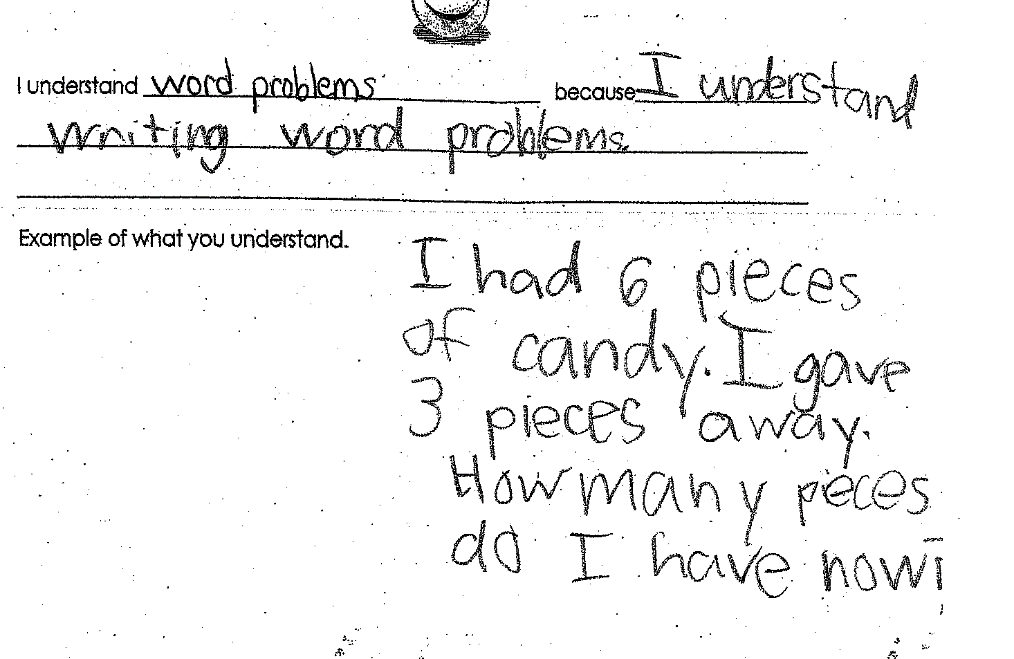 I understand word problems because I understand
writing word problems.
Example of what you understand.
I had 6 pieces
of candy. I gave
3 pieces away.
How many pieces
do I have now?